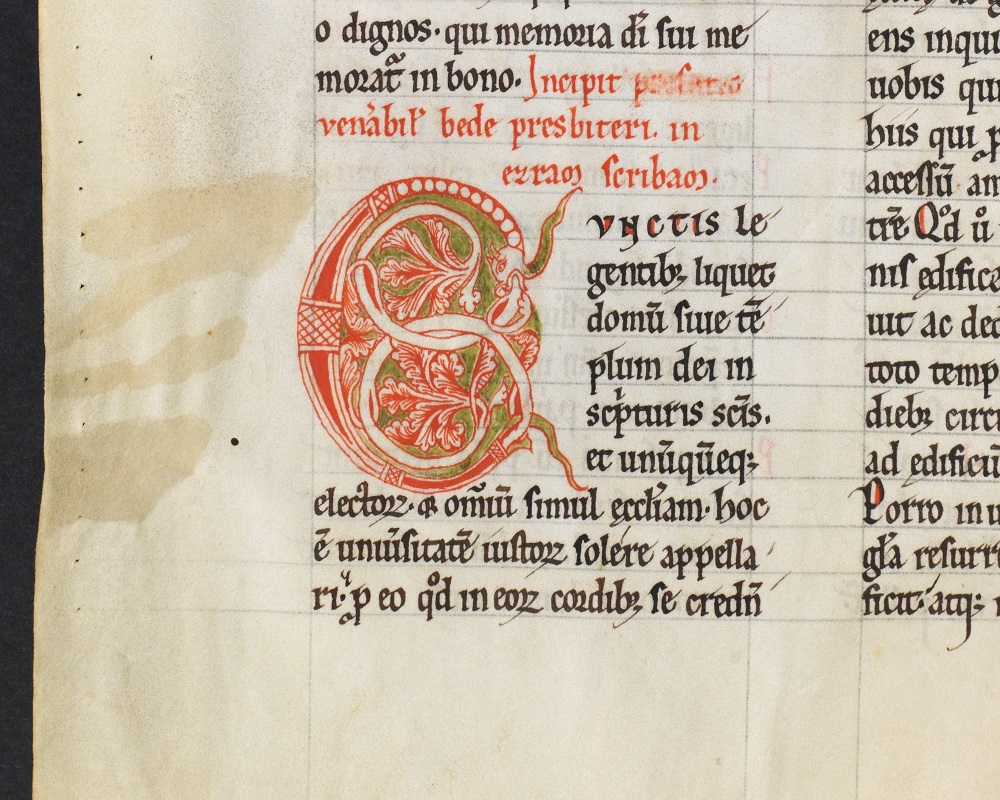 o dignos. qui memoria dī sui me
morat̄ in bono. Incipit prefatio
ven̄abil̄ bede presbiteri. in
ezram scribam.
CVNCTIS le
gentib; liquet
domū siue tē
plum dei in
sc̄pturis sc̄is.
et unūqūeq;
electoꝝ. & om̄iū simul ęccl̄iam. hoc
ē uniūsitatē iustoꝝ solére appella
ri. ꝓ eo qd̄ in eoꝝ cordib; se credn̄
ens inqui
uobis qui
hiis qui
accessū am
tr̄e Qd̄ ū
nis edifica
uit ac ded
toto temp
dieb; circu
ad edificiū
Porro in u
gl̄a resurre
ficit. atq;